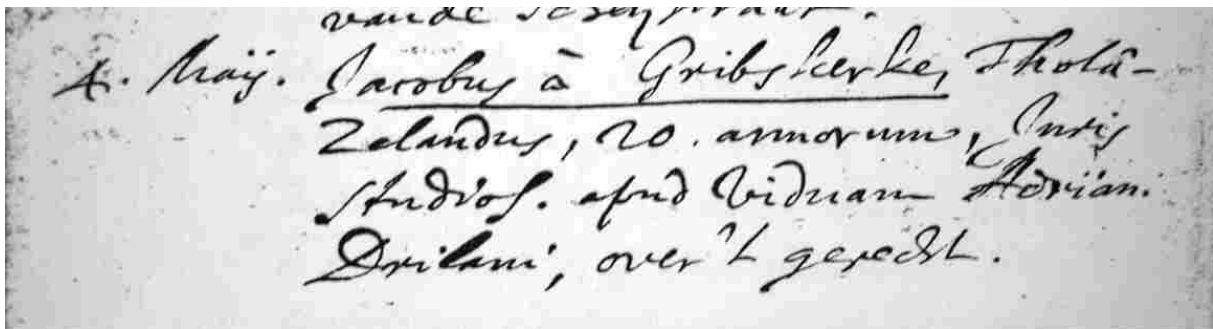 vande
4. Maÿ. Jacobus à Gribskerke, Tholâ-
Zelandus, 20. annorum, Juris
studios. apud viduam Adriani
Drilani, over 't gerecht.